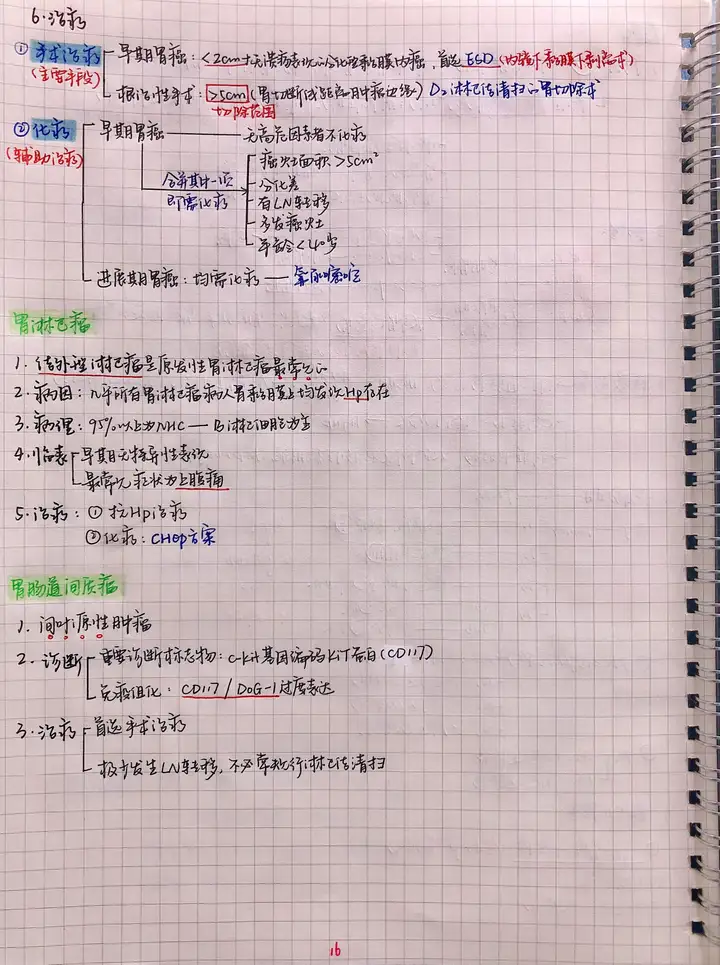 6.治疗
① 手术治疗 早期胃癌：<2cm+无溃疡表现的分化型黏膜内癌，首选 ESD (内镜下黏膜下剥离术)
(主要手段) 根治性手术：>5cm (胃切断线距离肿瘤边缘) D₂淋巴结清扫的胃切除术
切除范围
② 化疗 早期胃癌 无高危因素者不化疗
(辅助治疗) 癌灶面积 >5cm²
合并其中一项 分化差
即需化疗 有LN转移
多发癌灶
年龄<40岁
进展期胃癌：均需化疗 — 氟尿嘧啶
胃淋巴瘤
1. 结外型淋巴瘤是原发性胃淋巴瘤最常见的
2. 病因：几乎所有胃淋巴瘤病人胃黏膜上均发现Hp存在
3. 病理：95%以上为NHC — B淋巴细胞为主
4. 临表 早期无特异性表现
最常见症状为上腹痛
5. 治疗：① 抗Hp治疗
② 化疗：CHOP方案
胃肠道间质瘤
1. 间叶源性肿瘤
2. 诊断 重要诊断标志物：c-kit基因编码KIT蛋白(CD117)
免疫组化：CD117 / DOG-1过度表达
3. 治疗 首选手术治疗
极少发生LN转移，不必常规行淋巴结清扫
16